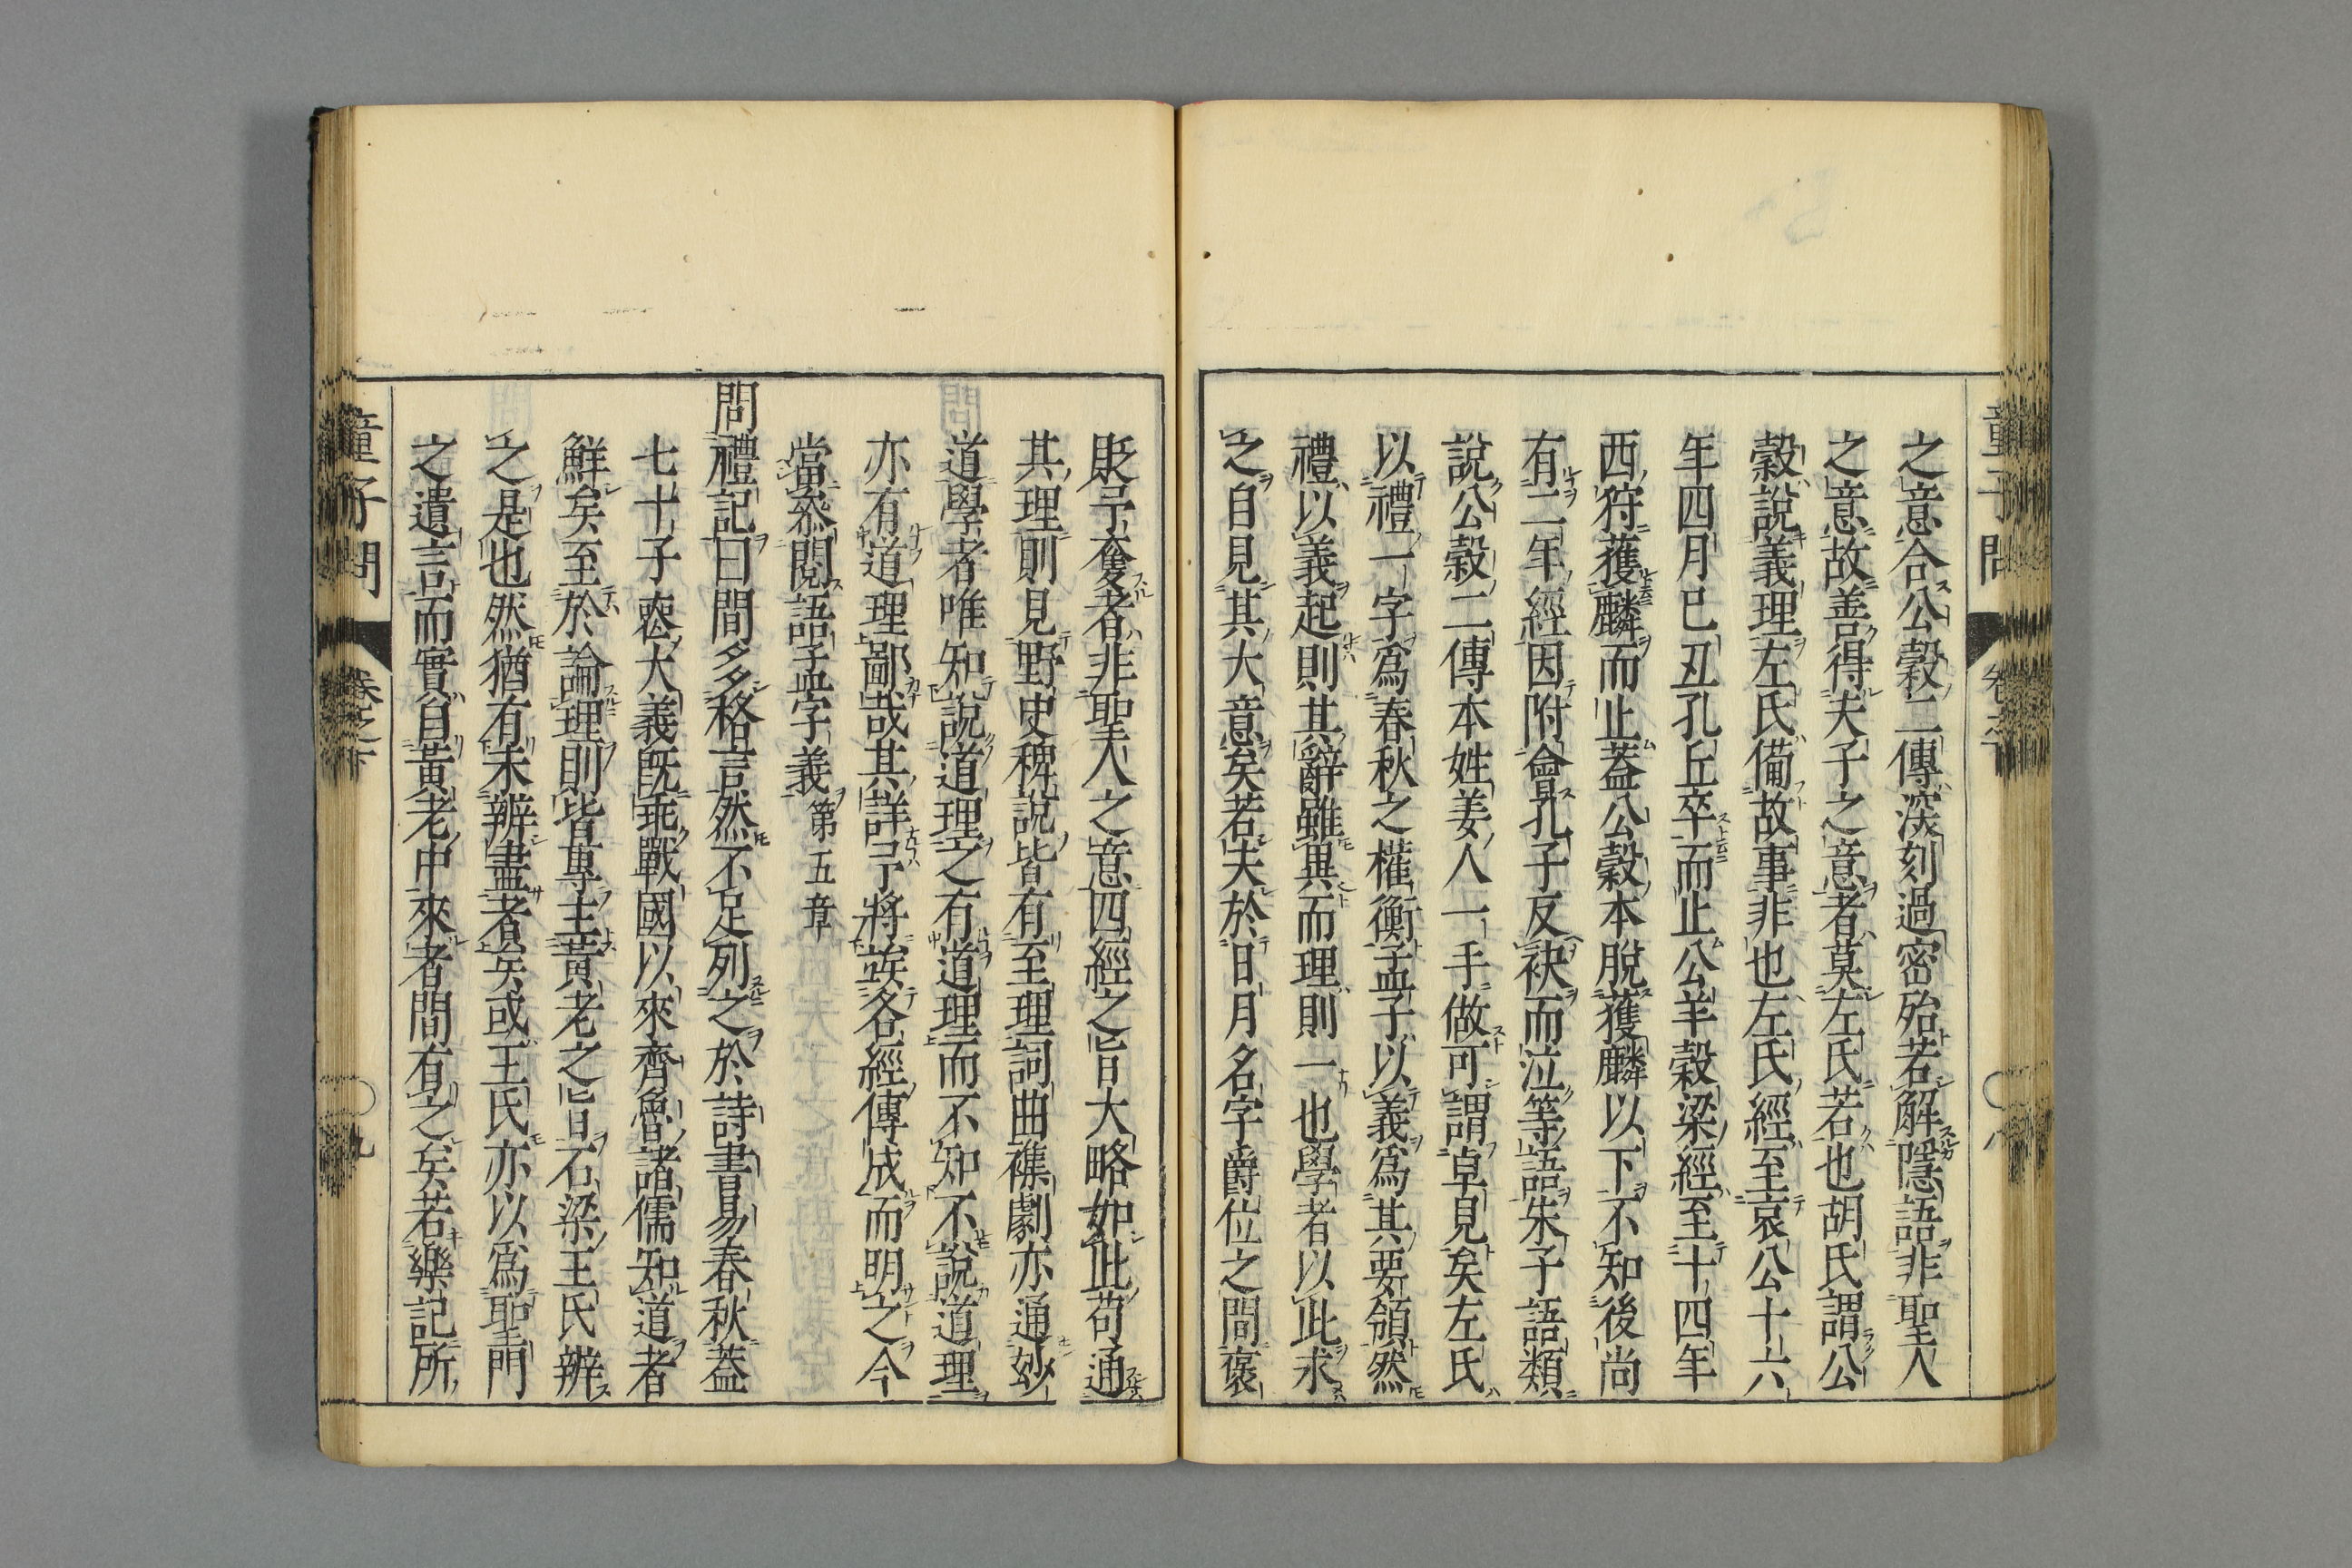 之意合公穀二傳深刻過密殆若解隱語非聖人
之意故善得夫子之意者莫左氏若也胡氏謂公
穀說義理左氏備故事非也左氏經至哀公十六
年四月己丑孔丘卒而止公羊穀梁經至十四年
西狩獲麟而止蓋公穀本脫獲麟以下不知後尚
有二年經因附會孔子反袂而泣等語朱子語類
說公穀二傳本姓姜人一手做可謂卓見矣左氏
以禮一字爲春秋之權衡孟子以義爲其要領然
禮以義起則其辭雖異而理則一也學者以此求
之自見其大意矣若夫於日月名字爵位之間褒
貶予奪者非聖人之意四經之旨大略如此苟通
其理則見野史稗說皆有至理詞曲襍劇亦通妙
道學者唯知說道理之有道理而不知不說道理
亦有道理鄙哉其詳予將竢各經傳成而明之今
當叅閱語孟字義第五章
問禮記曰間多格言然不足列之於詩書易春秋蓋
七十子喪大義旣乖戰國以來齊魯諸儒知道者
鮮矣至於論理則皆專主黃老之旨石梁王氏辨
之是也然猶有未辨盡者矣或王氏亦以爲聖門
之遺言而實自黃老中來者間有之矣若樂記所
童子問 卷之下 九